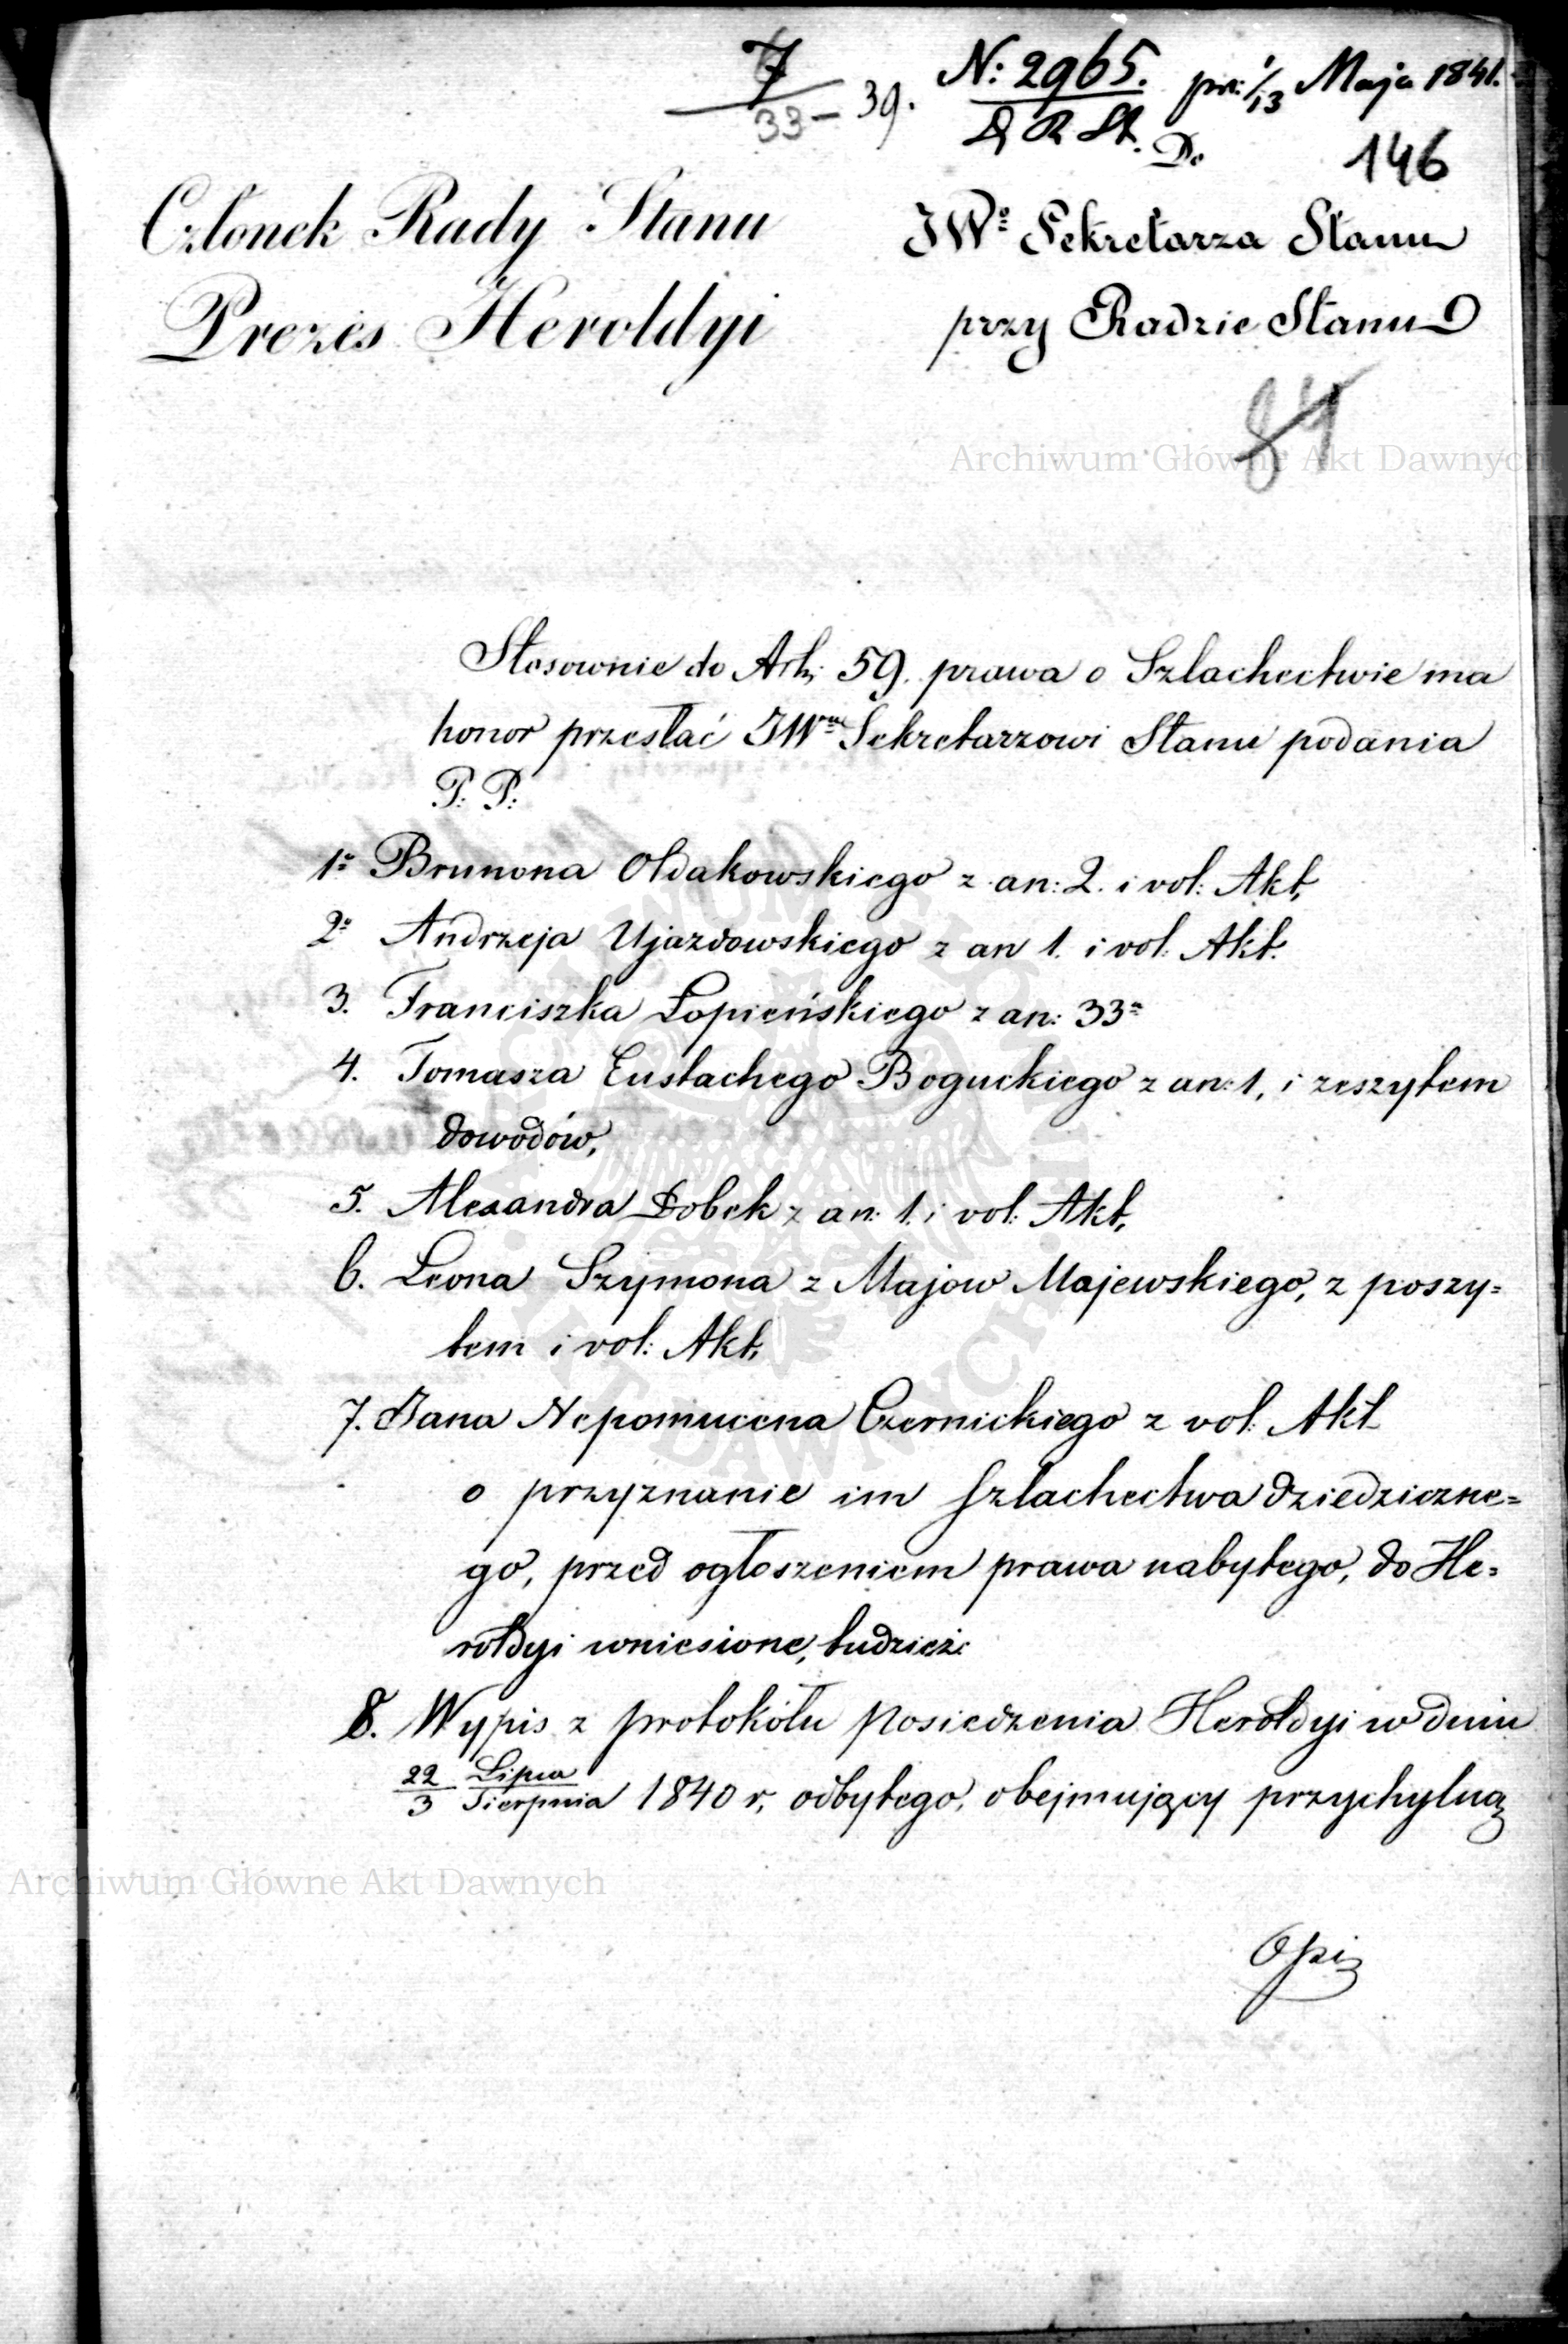 7
33 — 39.
N: 2965. pr: 1/13 Maja 1841.
D R St.
Do
146
Członek Rady Stanu
Prezes Heroldyi
JWo Sekretarza Stanu
przy Radzie Stanu
84
Archiwum Główne Akt Dawnych
Stosownie do Art: 59. prawa o Szlachectwie ma
honor przesłać JWmu Sekretarzowi Stanu podania
P: P:
1o Brunona Ołdakowskiego z an: 2. i vol: Akt,
2o Andrzeja Ujazdowskiego z an 1. i vol: Akt.
3. Franciszka Łopieńskiego z an: 33a
4. Tomasza Eustachego Boguckiego z an: 1, i zeszytem
dowodów,
5. Alexandra Dobek z an: 1. i vol: Akt,
6. Leona Szymona z Majow Majewskiego, z poszy=
tem i vol: Akt,
7. Jana Nepomucena Czernickiego z vol: Akt
o przyznanie im szlachectwa dziedziczne=
go, przed ogłoszeniem prawa nabytego, do He=
rołdyi wniesione, tudzież
8. Wypis z protokółu posiedzenia Herołdyi w dniu
22 Lipca
3 Sierpnia 1840 r, odbytego, obejmujący przychylną
Archiwum Główne Akt Dawnych
Opi